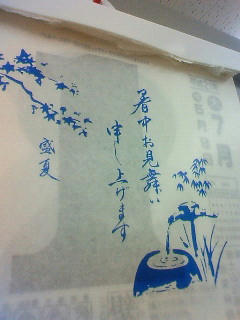 暑中お見舞い
申し上げます
盛夏